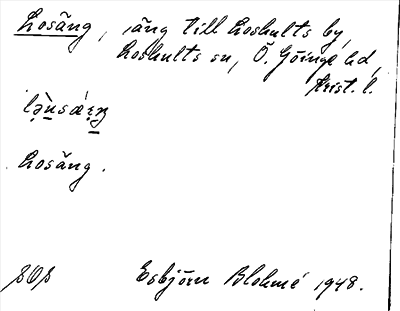 Losäng, äng till Loshults by,
Loshults sn, Ö. Göinge hd,
Krist. l.
Losäng.
SOS Esbjörn Blohmé 1948.